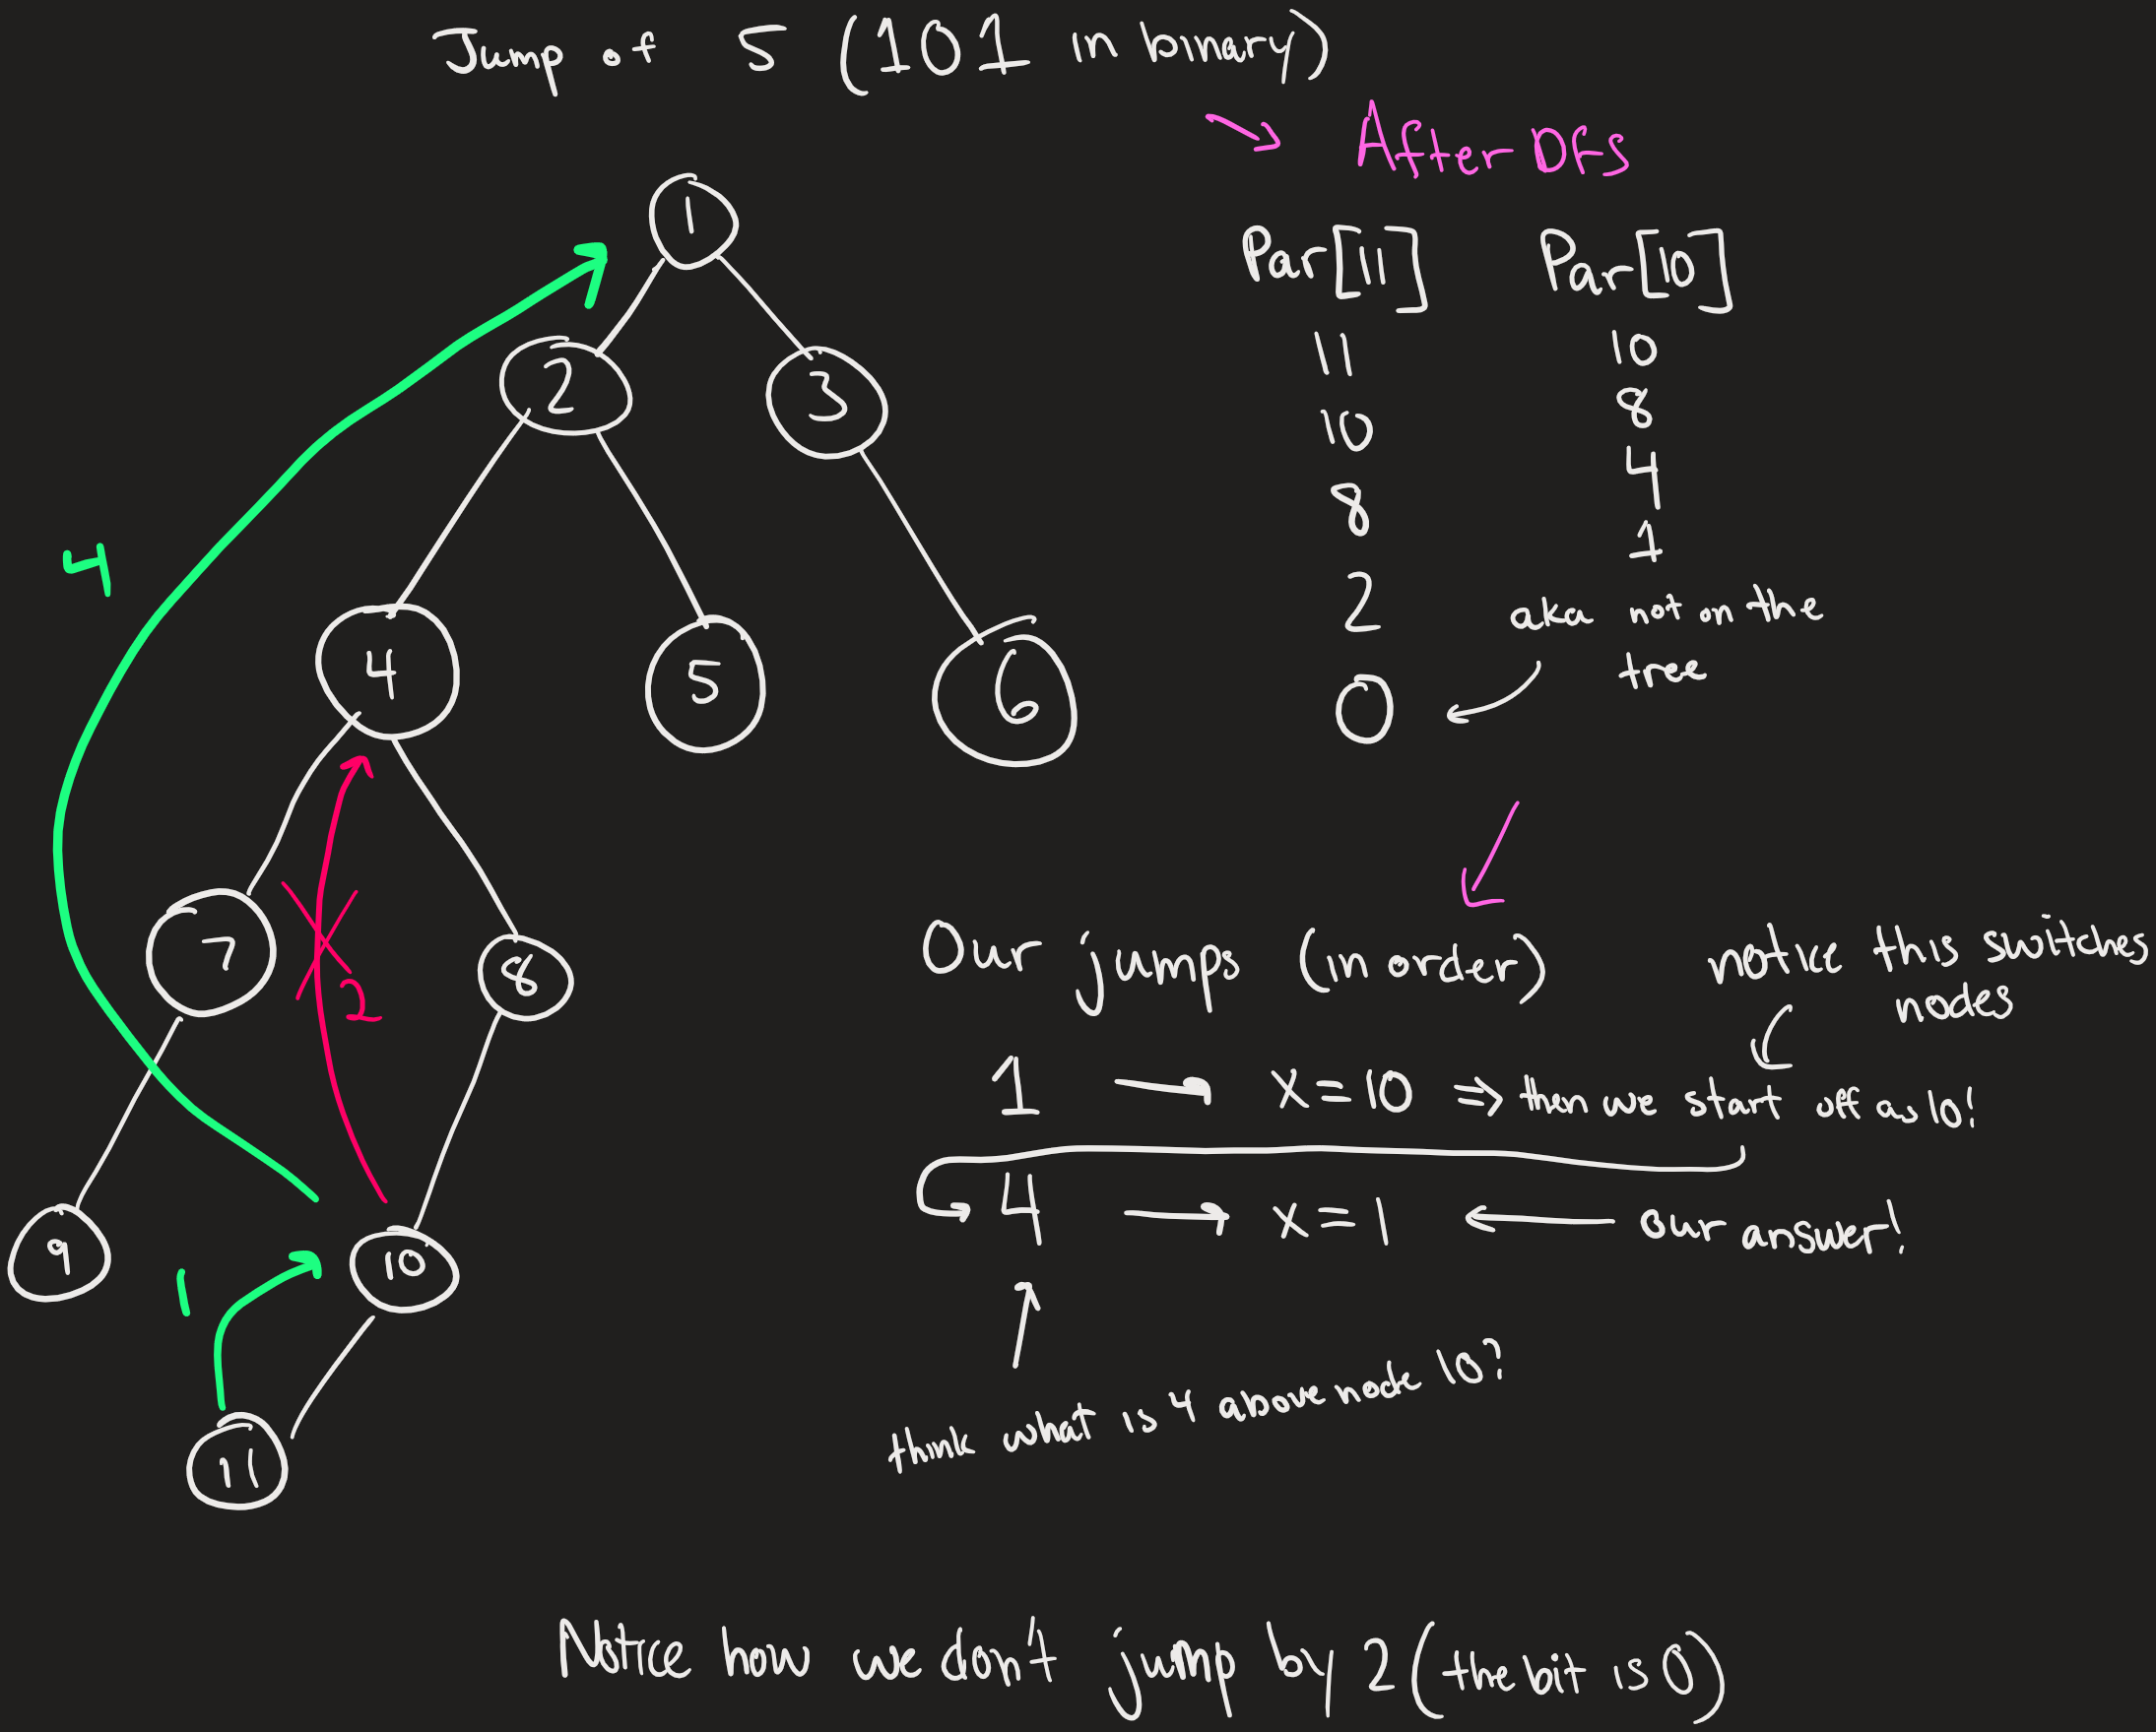 Jump of 5 (101 in binary)
After DFS
1
2
3
4
5
6
7
8
9
10
11
4
2
1
Par[11]
11
10
8
2
0
Par[10]
10
8
4
1
aka not on the
tree
Our jumps (in order)
notice this switches
nodes
1 → x=10 => then we start off as 10!
4 → x=1 ← our answer!
think what is 4 above node 10?
Notice how we don't jump by 2 (the bit is 0)